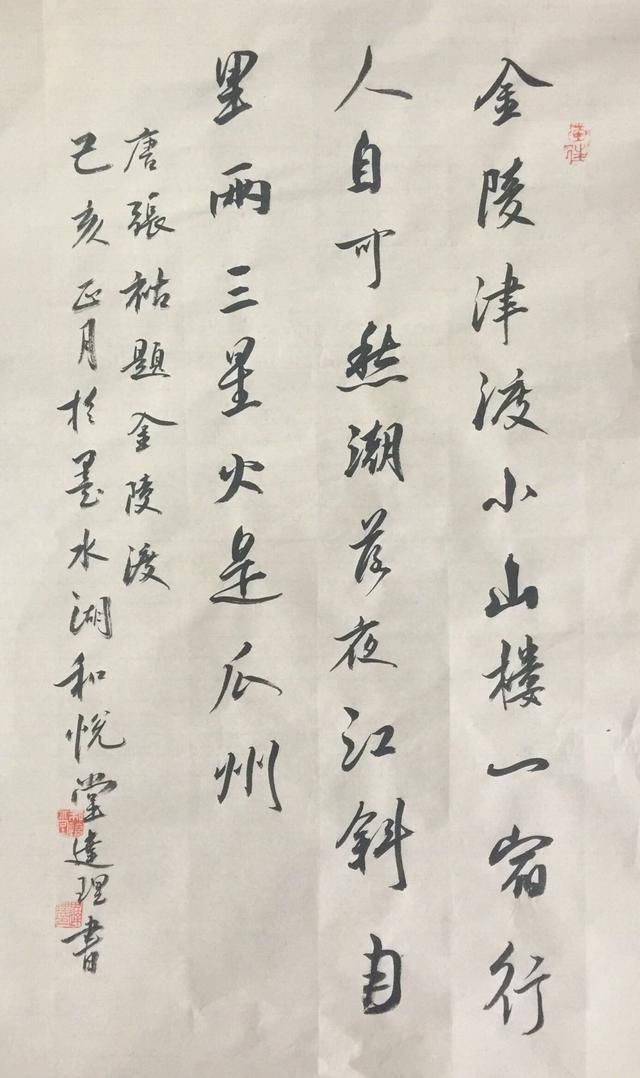 金陵津渡小山樓一宿行
人自可愁潮落夜江斜月
里兩三星火是瓜州
唐張祜題金陵渡
己亥正月於墨水湖和悅堂達理書